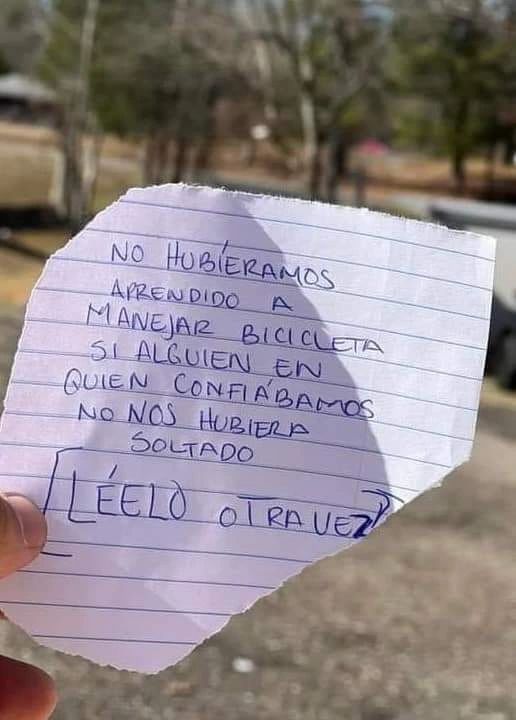 NO HUBIÉRAMOS
APRENDIDO A
MANEJAR BICICLETA
SI ALGUIEN EN
QUIEN CONFIÁBAMOS
NO NOS HUBIERA
SOLTADO
[LÉELO OTRA VEZ]